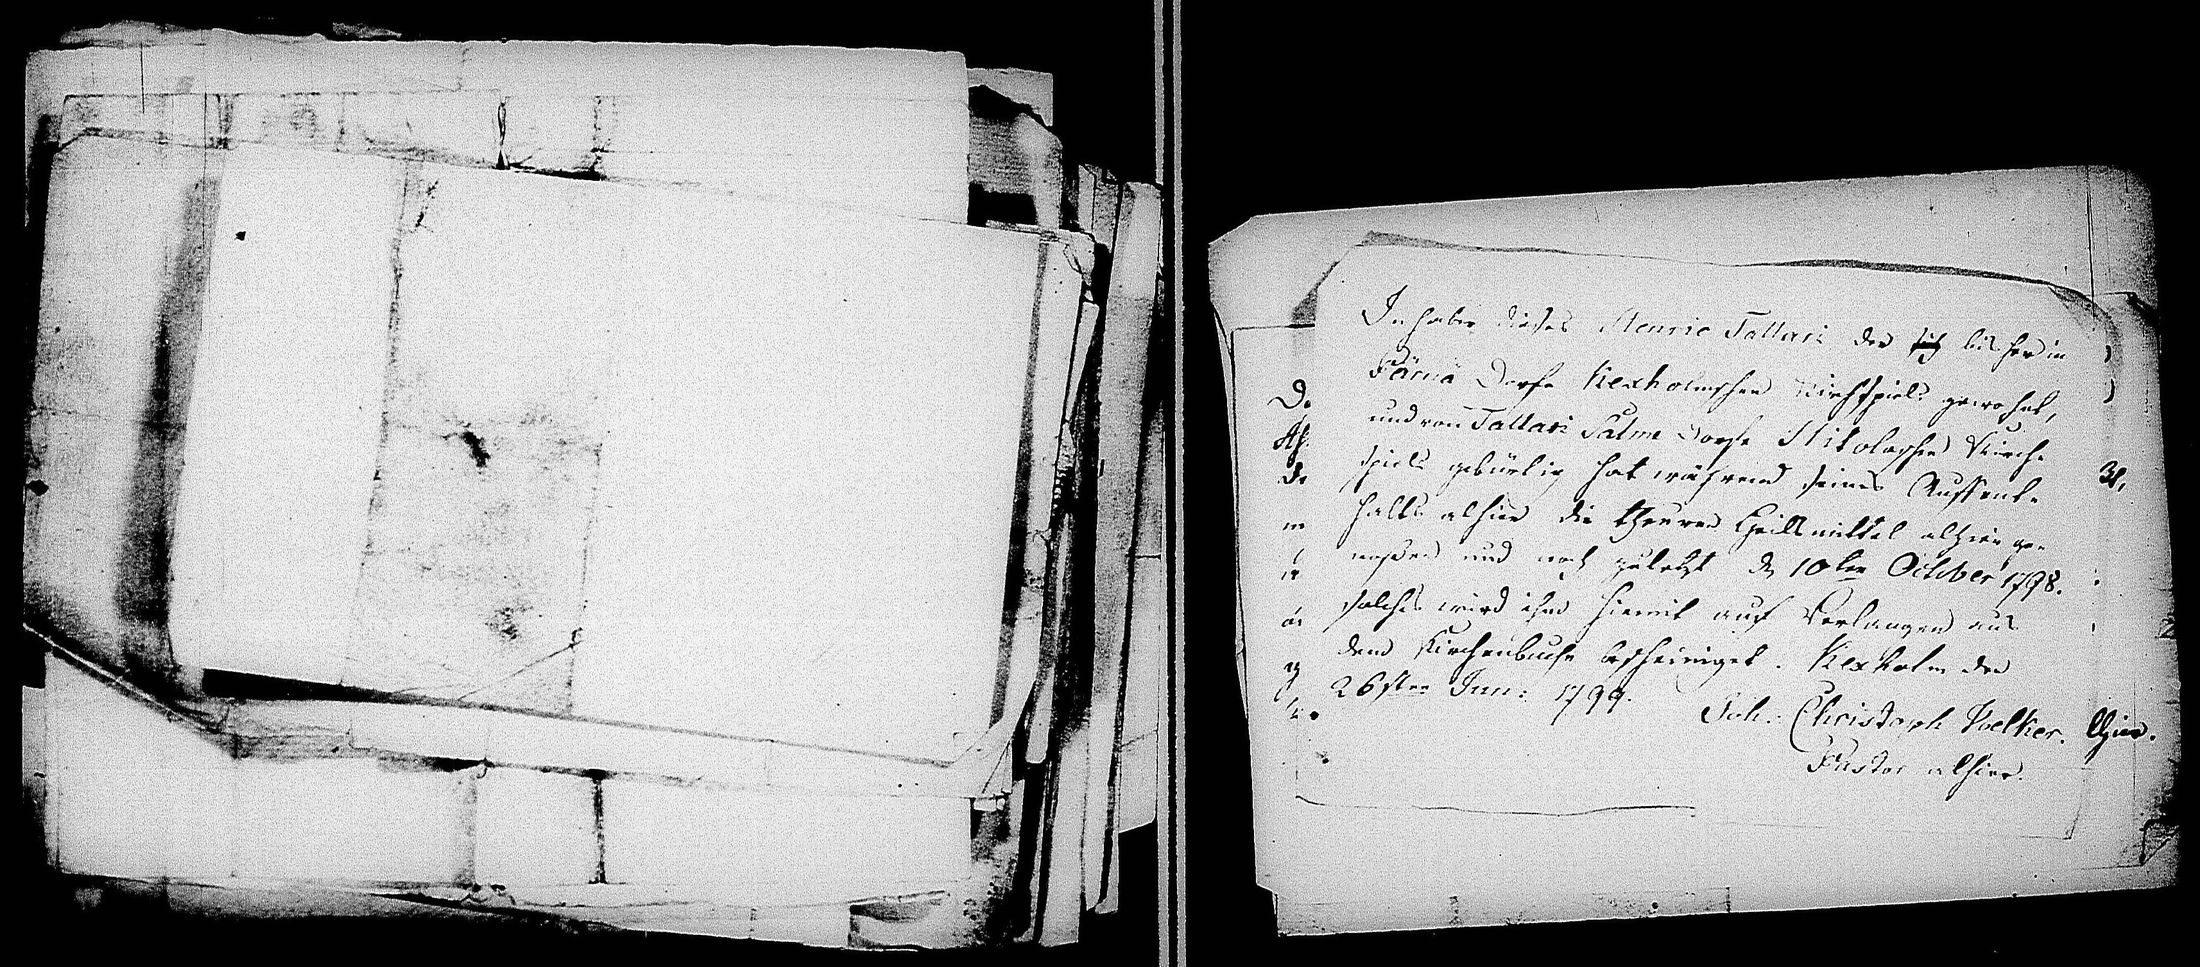 Inhaber dieses Henric Tattari der sich bisher in
Pärnä Dorfe Kexholmschen Kirchspiels gewohnet,
und von Tattari Dorfe Kirch-
spiels gebürtig hat während seines Auffent-
halts alhier die theuren Heillmittel alhier ge-
noßen und noch zuletzt d 10ten October 1798.
solches wird ihm hiemit auf Verlangen aus
dem Kirchenbuche bescheiniget. Kexholm den
26sten Jun: 1799.
Joh: Christoph Voelker.
Pastor alhier.
De
31.